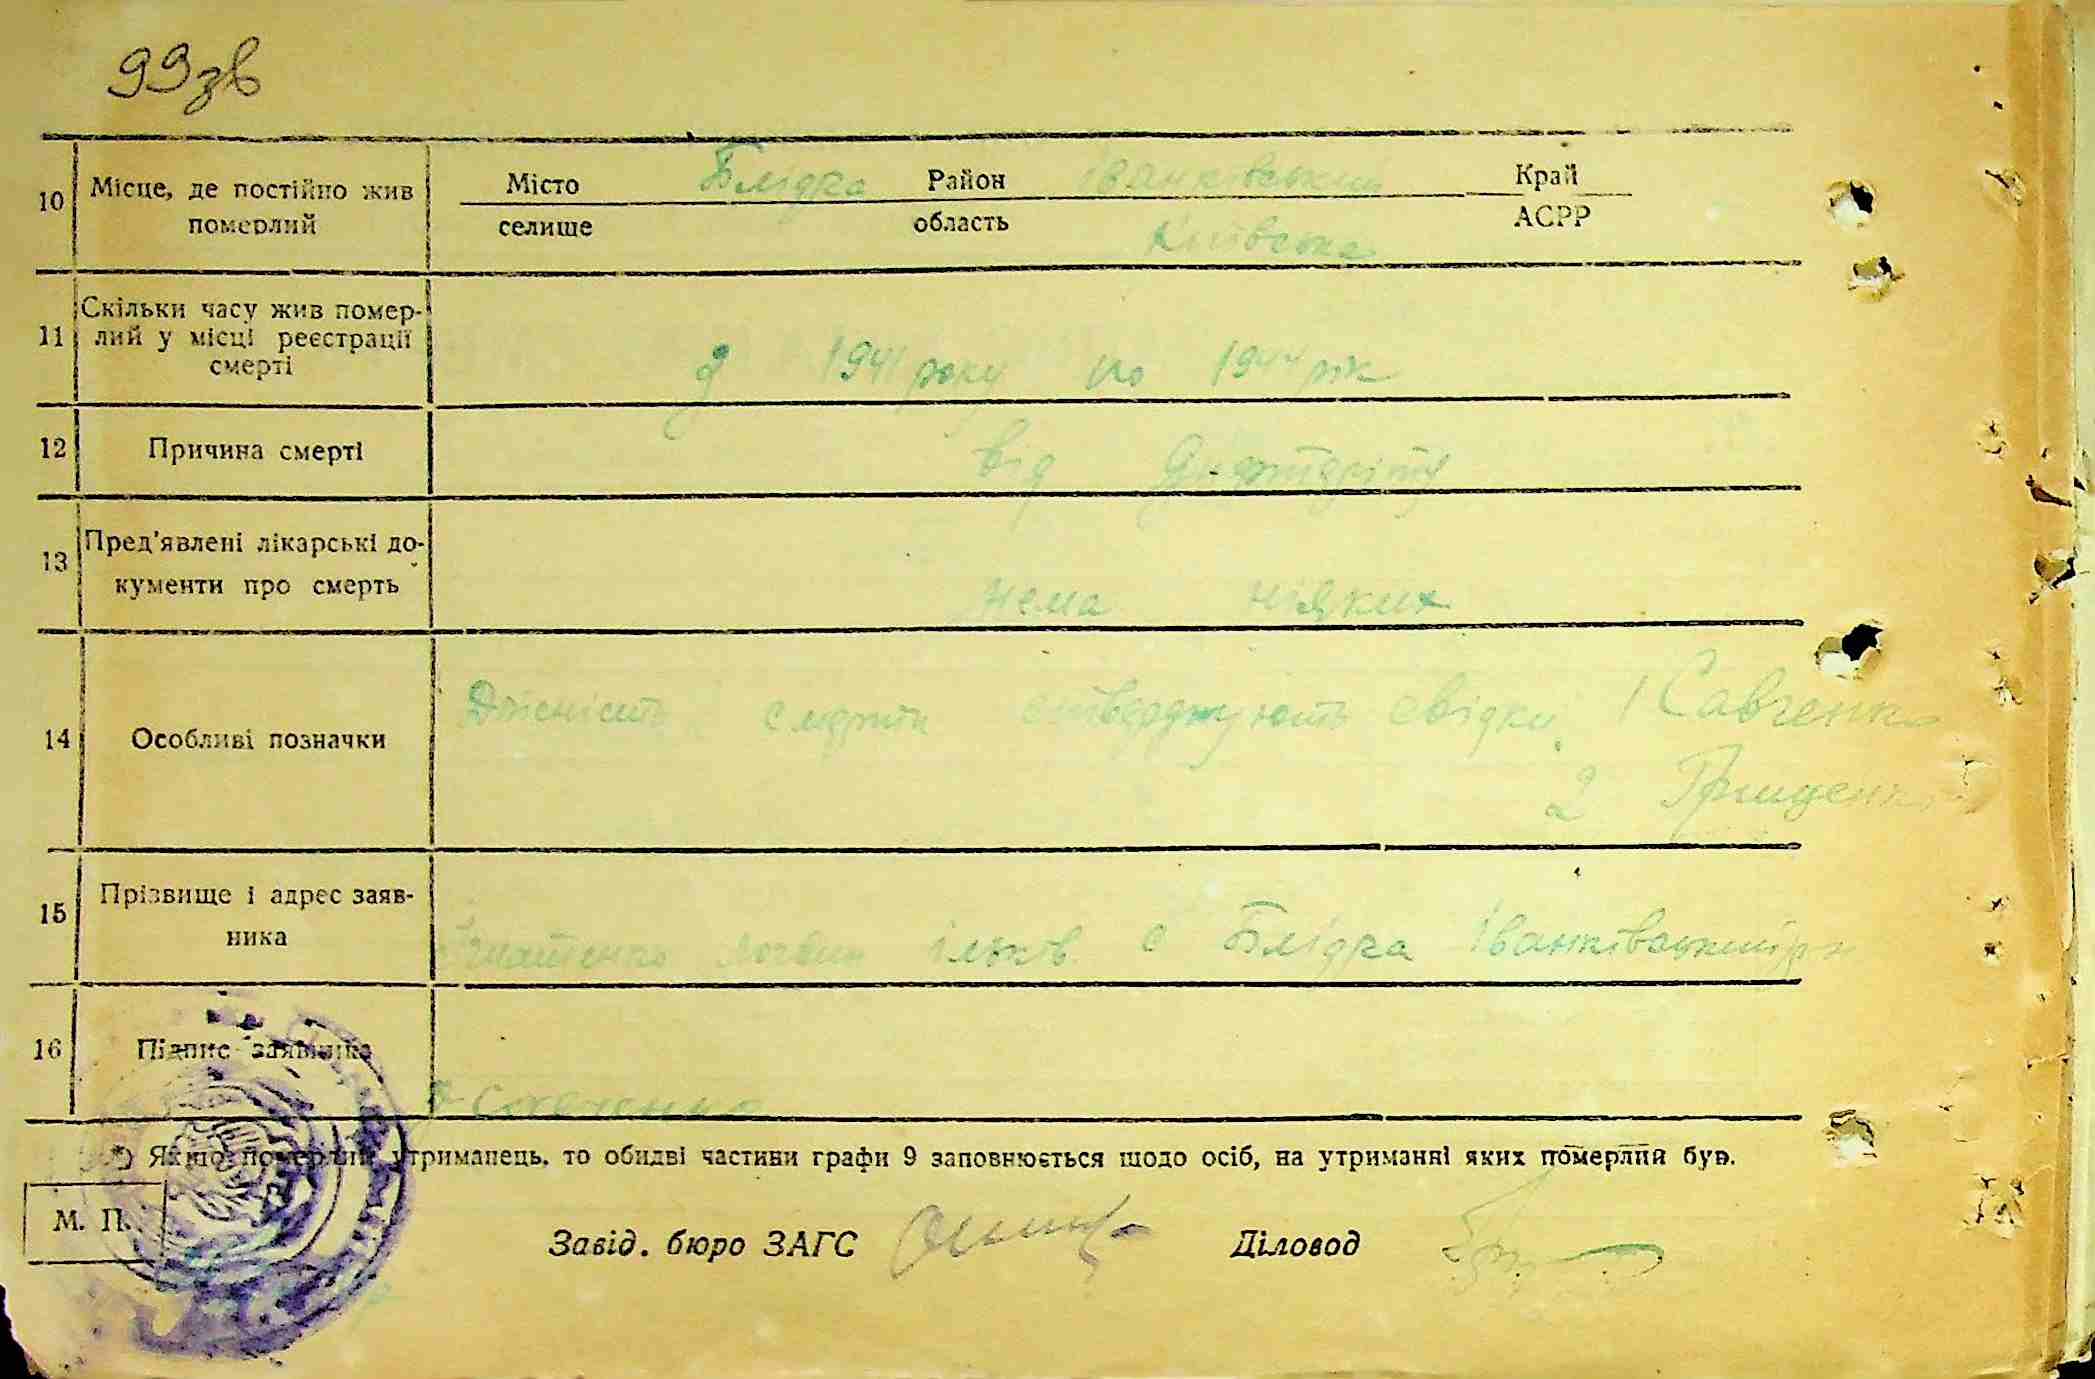 99зв
10 Місце, де постійно жив померлий Місто Блідча Район Іванківський Край
селище область Київська АСРР
11 Скільки часу жив помер-
лий у місці реєстрації
смерті
1941 року по 1944 рік
12 Причина смерті від
13 Пред'явлені лікарські до-
кументи про смерть
нема ніяких
14 Особливі позначки
Дійсність смерти стверджують свідки 1 Савченко
2 Грищенко
15 Прізвище і адрес заяв-
ника
Ігнатенко Логвин с Блідча Іванківський р н
16 Підпис заявника
*) Якщо померлий утриманець, то обидві частини графи 9 заповнюється щодо осіб, на утриманні яких померлий був.
М. П.
Завід. бюро ЗАГС Діловод